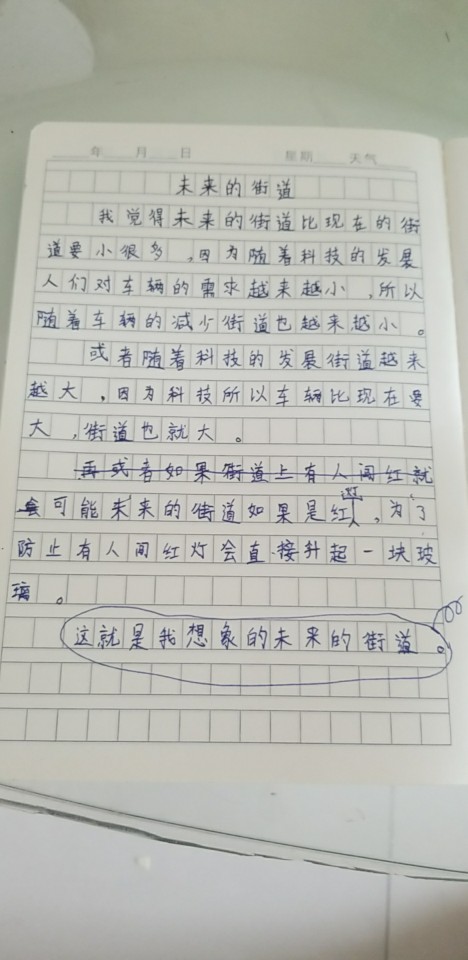 年 月 日 星期 天气
未来的街道
我觉得未来的街道比现在的街
道要小很多,因为随着科技的发展
人们对车辆的需求越来越小,所以
随着车辆的减少街道也越来越小。
或者随着科技的发展街道越来
越大,因为科技所以车辆比现在要
大,街道也就大。
再或者如果街道上有人闯红就
会可能未来的街道如果是红灯,为了
防止有人闯红灯会直接升起一块玻
璃。
这就是我想象的未来的街道。